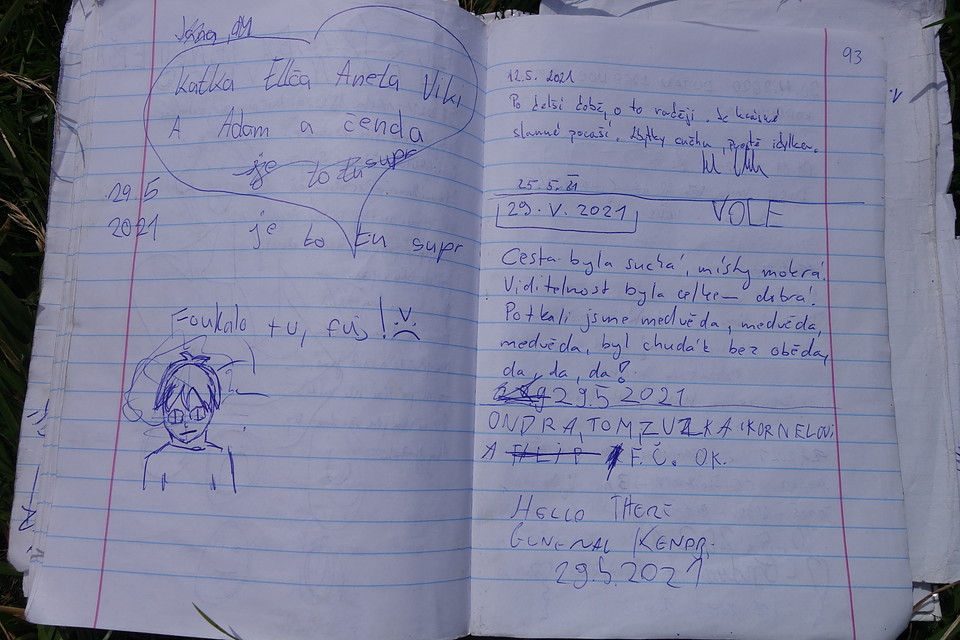 Katka Elča Aneta Viki
A Adam a čenda
je to tu supr
29.5
2021
je to tu supr
Foukalo tu, fuj, !
93
12.5. 2021
Po delší době, o to raději, se krásné
slunné počasí, zbytky sněhu, prostě idylka.
25.5.21
29. V. 2021 VOLE
Cesta byla suchá, místy mokrá.
Viditelnost byla celke— dobrá!
Potkali jsme medvěda, medvěda,
medvěda, byl chudák bez oběda,
da, da, da!
29.5 2021
ONDRA, TOM, ZUZKA
A F.Č. OK.
HELLO THERE
GENERAL
29.5.2021